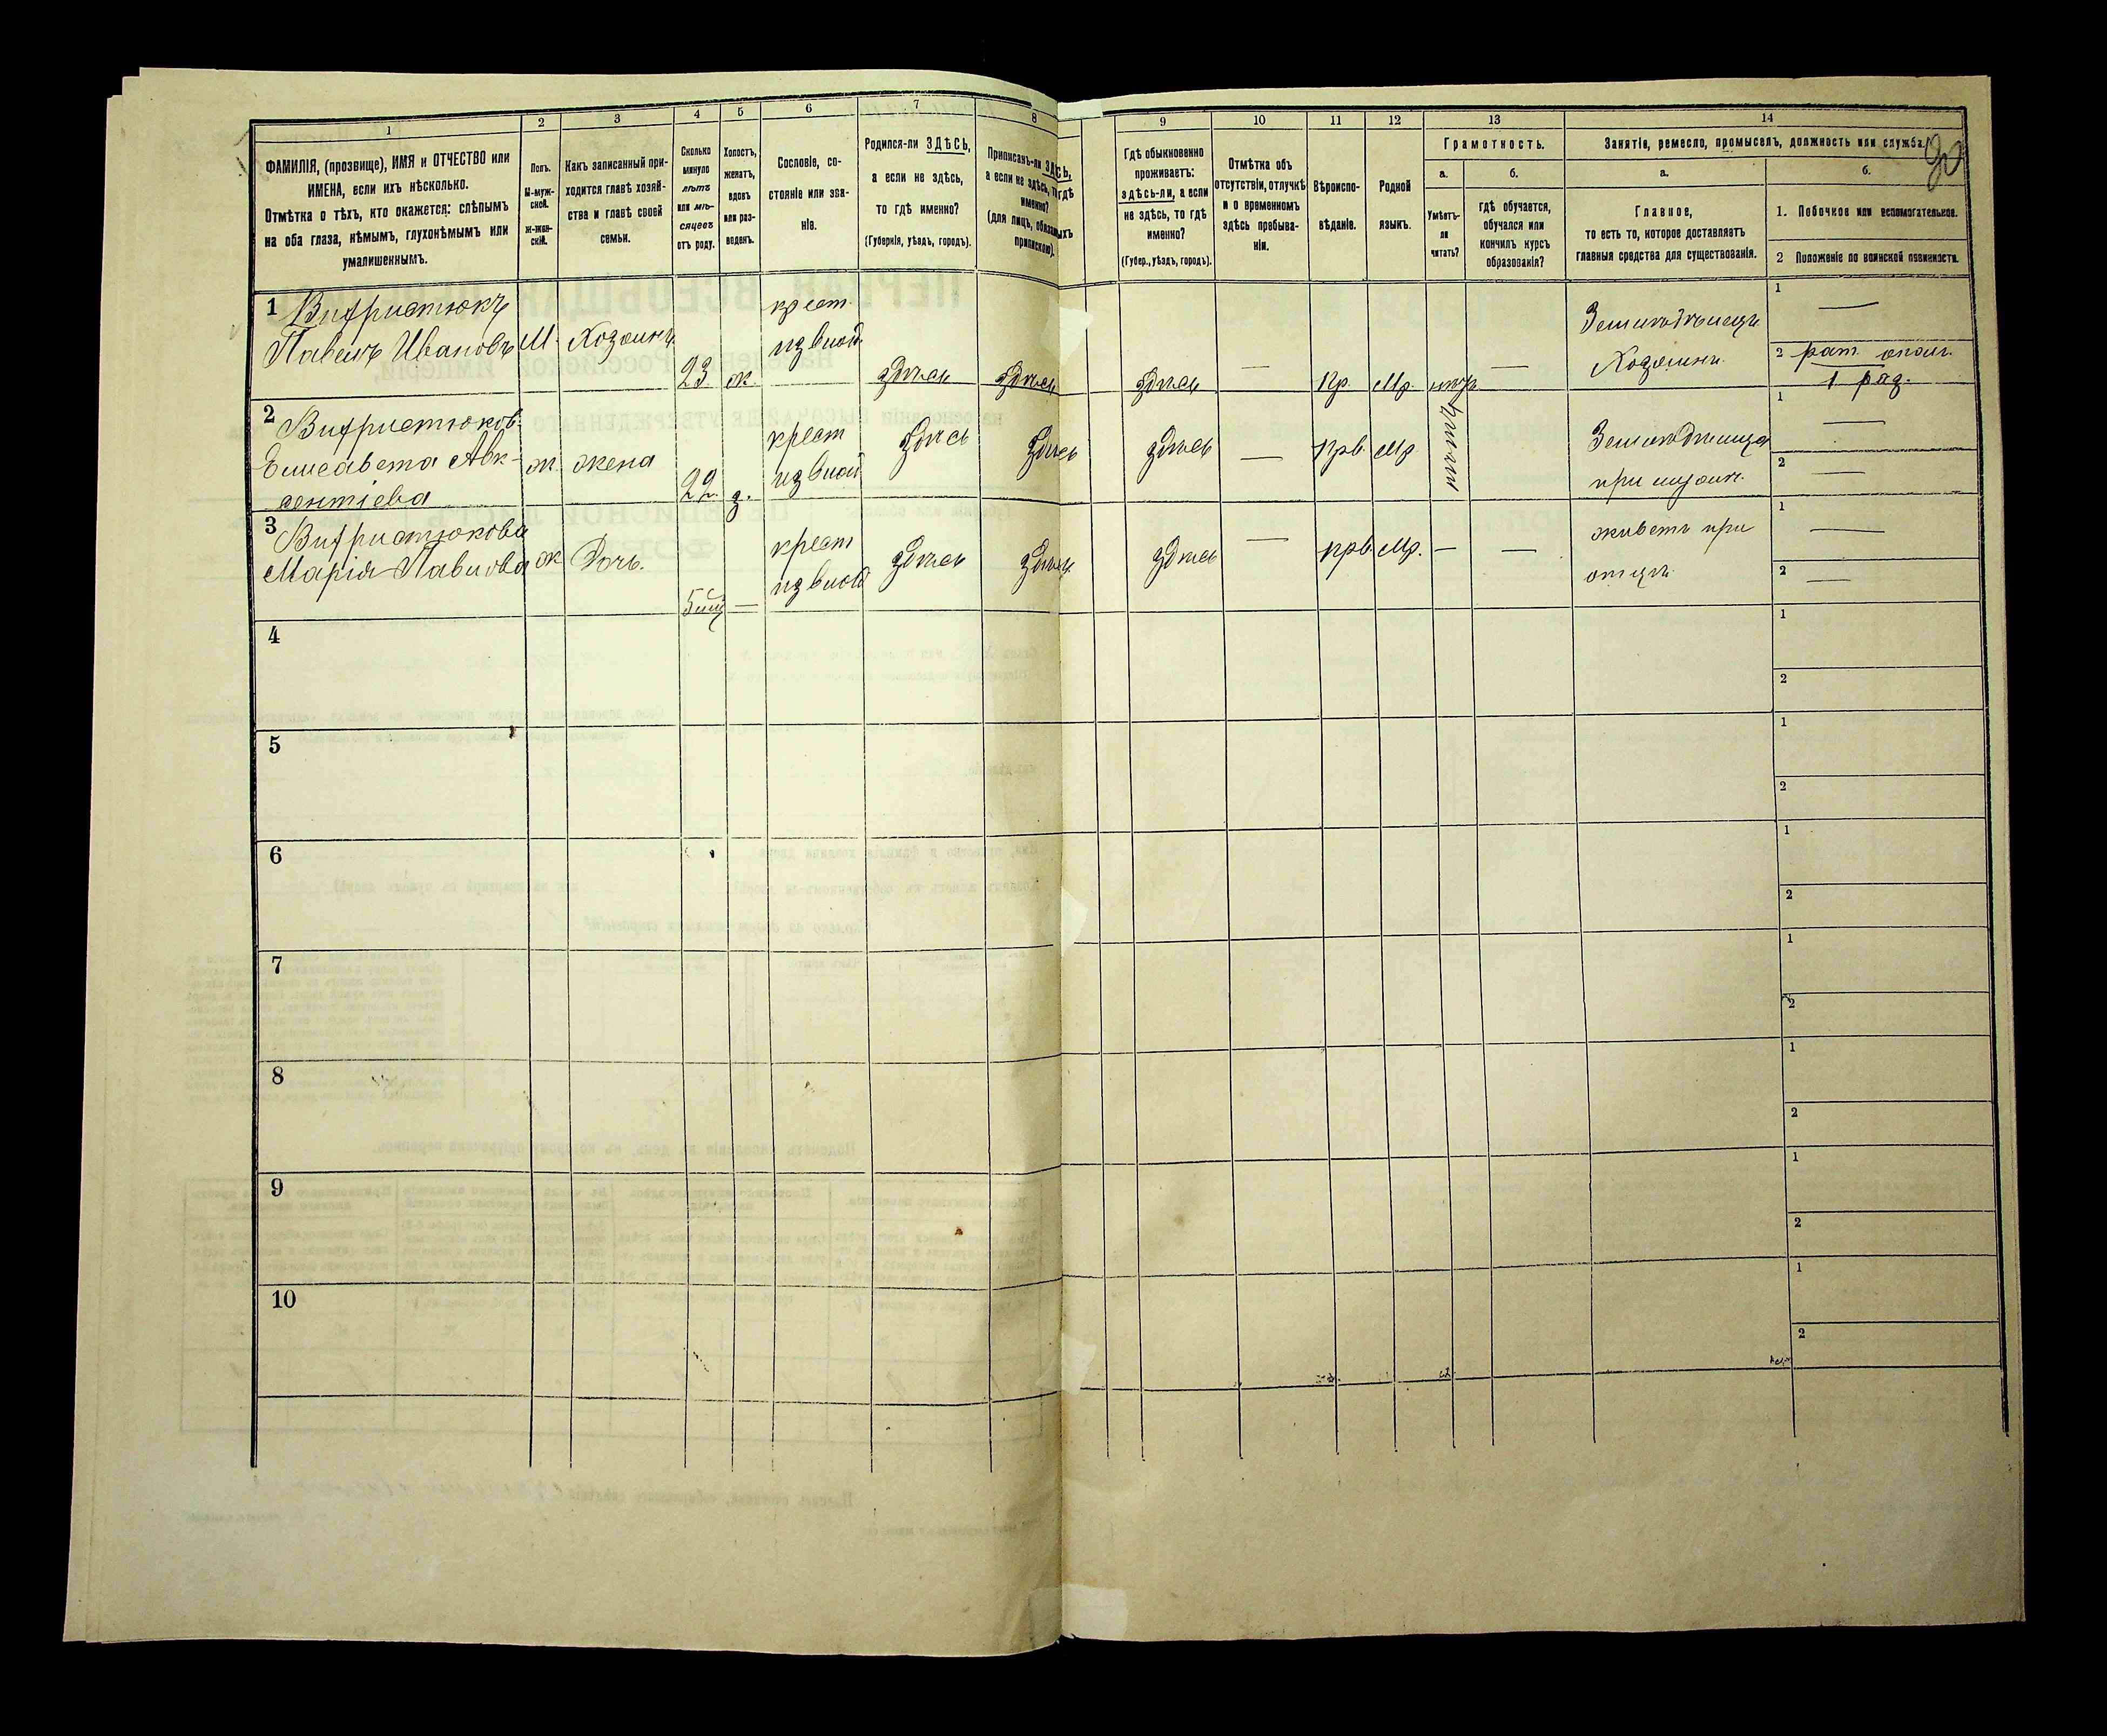 1 2 3 4 5 6 7 8 9 10 11 12 13 14
ФАМИЛІЯ, (прозвище), ИМЯ и ОТЧЕСТВО или
ИМЕНА, если ихъ нѣсколько.
Отмѣтка о тѣхъ, кто окажется: слѣпымъ
на оба глаза, нѣмымъ, глухонѣмымъ или
умалишеннымъ.
Полъ.
М-муж-
ской.
Ж-жен-
скій.
Какъ записанный при-
ходится главѣ хозяй-
ства и главѣ своей
семьи.
Сколько
минуло
лѣтъ
или мѣ-
сяцевъ
отъ роду.
Холостъ,
женатъ,
вдовъ
или раз-
веденъ.
Сословіе, со-
стояніе или зва-
ніе.
Родился-ли ЗДѢСЬ,
а если не здѣсь,
то гдѣ именно?
(Губернія, уѣздъ, городъ).
Приписанъ-ли ЗДѢСЬ,
а если не здѣсь, то гдѣ
именно?
(для лицъ, обязанныхъ
припискою).
Гдѣ обыкновенно
проживаетъ:
здѣсь-ли, а если
не здѣсь, то гдѣ
именно?
(Губер., уѣздъ, городъ).
Отмѣтка объ
отсутствіи, отлучкѣ
и о временномъ
здѣсь пребыва-
ніи.
Вѣроиспо-
вѣданіе.
Родной
языкъ.
Грамотность.
а.
Умѣетъ-
ли
читать?
б.
гдѣ обучается,
обучался или
кончилъ курсъ
образованія?
Занятіе, ремесло, промыселъ, должность или служба.
а.
Главное,
то есть то, которое доставляетъ
главныя средства для существованія.
б.
1. Побочное или вспомогательное.
2 Положеніе по воинской повинности.
1 Павелъ Ивановъ М. Хозяинъ 23 ж. крест. здѣсь здѣсь здѣсь — Пр. Мр. —
Земледѣлецъ
Хозяинъ
1 —
2 рат. опол.
1 раз.
2 Елисавета Авк-
сентіева ж. жена 22 з. крест здѣсь здѣсь здѣсь — прв. Мр.
1 —
2 —
3
Марія Павлова ж Дочь. — крест здѣсь здѣсь здѣсь — прв. Мр. — —
живетъ при
отцѣ
1 —
2 —
4 1
2
5 1
2
6 1
2
7 1
2
8 1
2
9 1
2
10 1
2